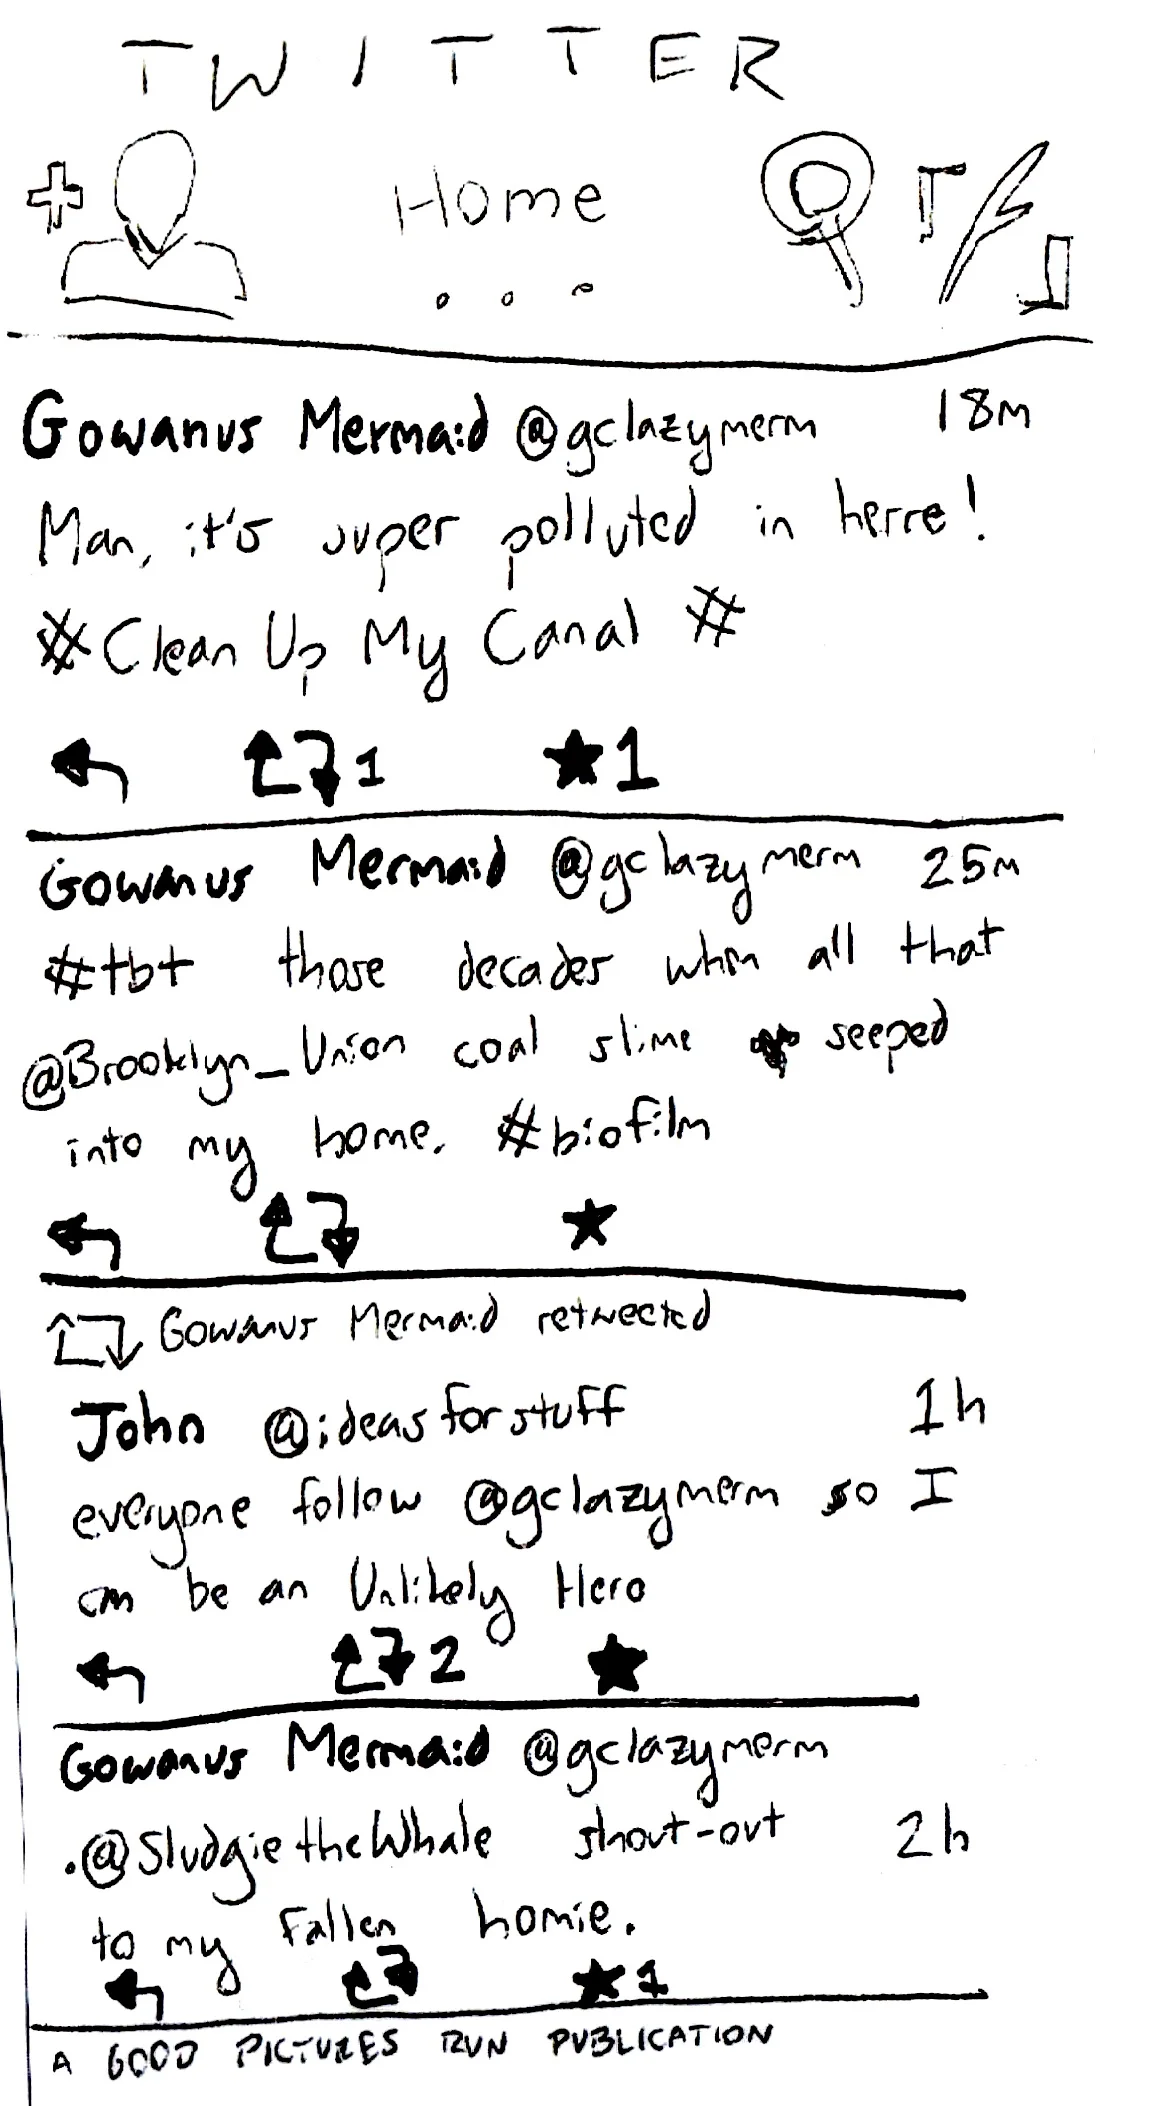 TWITTER
Home
Gowanus Mermaid @gclazymerm 18m
Man, it's super polluted in herre!
#Clean Up My Canal #
1 1
Gowanus Mermaid @gclazymerm 25m
#tbt those decades when all that
@Brooklyn_Union coal slime seeped
into my home. #biofilm
Gowanus Mermaid retweeted
John @ideasforstuff 1h
everyone follow @gclazymerm so I
can be an Unlikely Hero
2
Gowanus Mermaid @gclazymerm
.@SludgietheWhale shout-out 2h
to my fallen homie.
1
A GOOD PICTURES RUN PUBLICATION